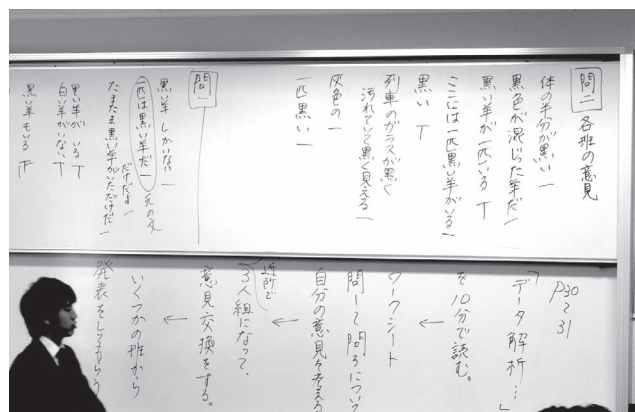 問二 各班の意見
体の半分が黒い 一
黒色が混じった羊だ 一
黒い羊が一匹いる T
ここには一匹黒い羊がいる 一
黒い T
列車のガラスが黒く
汚れていて黒く見える 一
灰色の 一
一匹黒い 一
問一
黒い羊しかいない 一
一匹は黒い羊だ 一 元の文
だけだよ 一
たまたま黒い羊がいただけだ 一
黒い羊がいる T
白い羊がいない T
黒い羊もいる
P30~31
「データ解析…」
を10分で読む。
↓
ワークシート
問一と問ろについ
自分の意見を考える
↓
近所で
3人組になって、
意見交換をする。
↓
いくつかの班から
発表をしてもらう